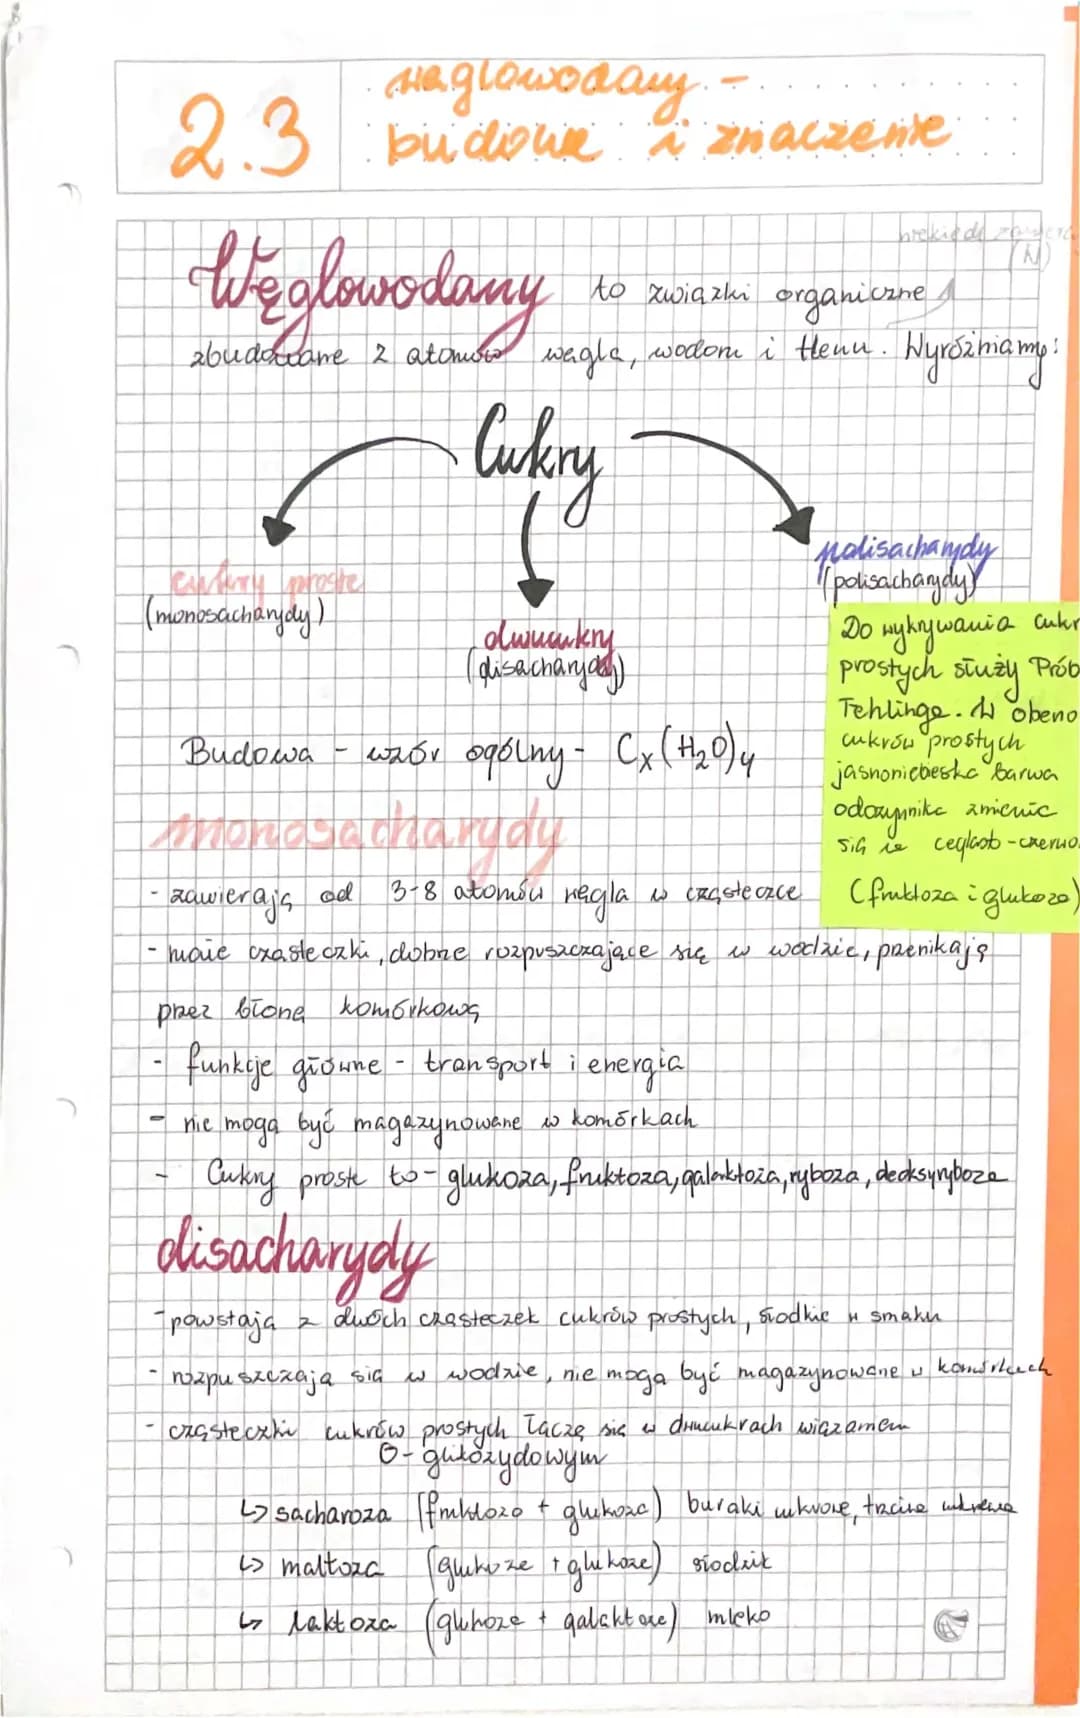 2.3
węglowodany -
budowa i znaczenie
niekiedy zawiera
(N)
Węglowodany to związki organiczne
zbudowane z atomów węgla, wodoru i tlenu. Wyróżniamy:
Cukry
cukry proste
(monosacharydy)
dwucukry
(disacharydy)
polisacharydy
(polisacharydy)
Do wykrywania cukr
prostych służy Prób
Fehlinga. W obecno
cukrów prostych
jasnoniebieska barwa
odczynnika zmienia
się na ceglasto-czerwo
(fruktoza i glukoza)
Budowa - wzór ogólny - Cx(H₂O)y
monosacharydy
- zawierają od 3-8 atomów węgla w cząsteczce
- małe cząsteczki, dobrze rozpuszczające się w wodzie, przenikają
przez błonę komórkową
- funkcje główne - transport i energia
- nie mogą być magazynowane w komórkach
- Cukry proste to - glukoza, fruktoza, galaktoza, ryboza, deoksyryboza
disacharydy
- powstają z dwóch cząsteczek cukrów prostych, słodkie w smaku
- rozpuszczają się w wodzie, nie mogą być magazynowane w komórkach
- cząsteczki cukrów prostych łączą się w dwucukrach wiązaniem
O-glikozydowym
↳ sacharoza (fruktoza + glukoza) buraki cukrowe, trzcina cukrowa
↳ maltoza (glukoza + glukoza) słodzik
↳ laktoza (glukoza + galaktoza) mleko